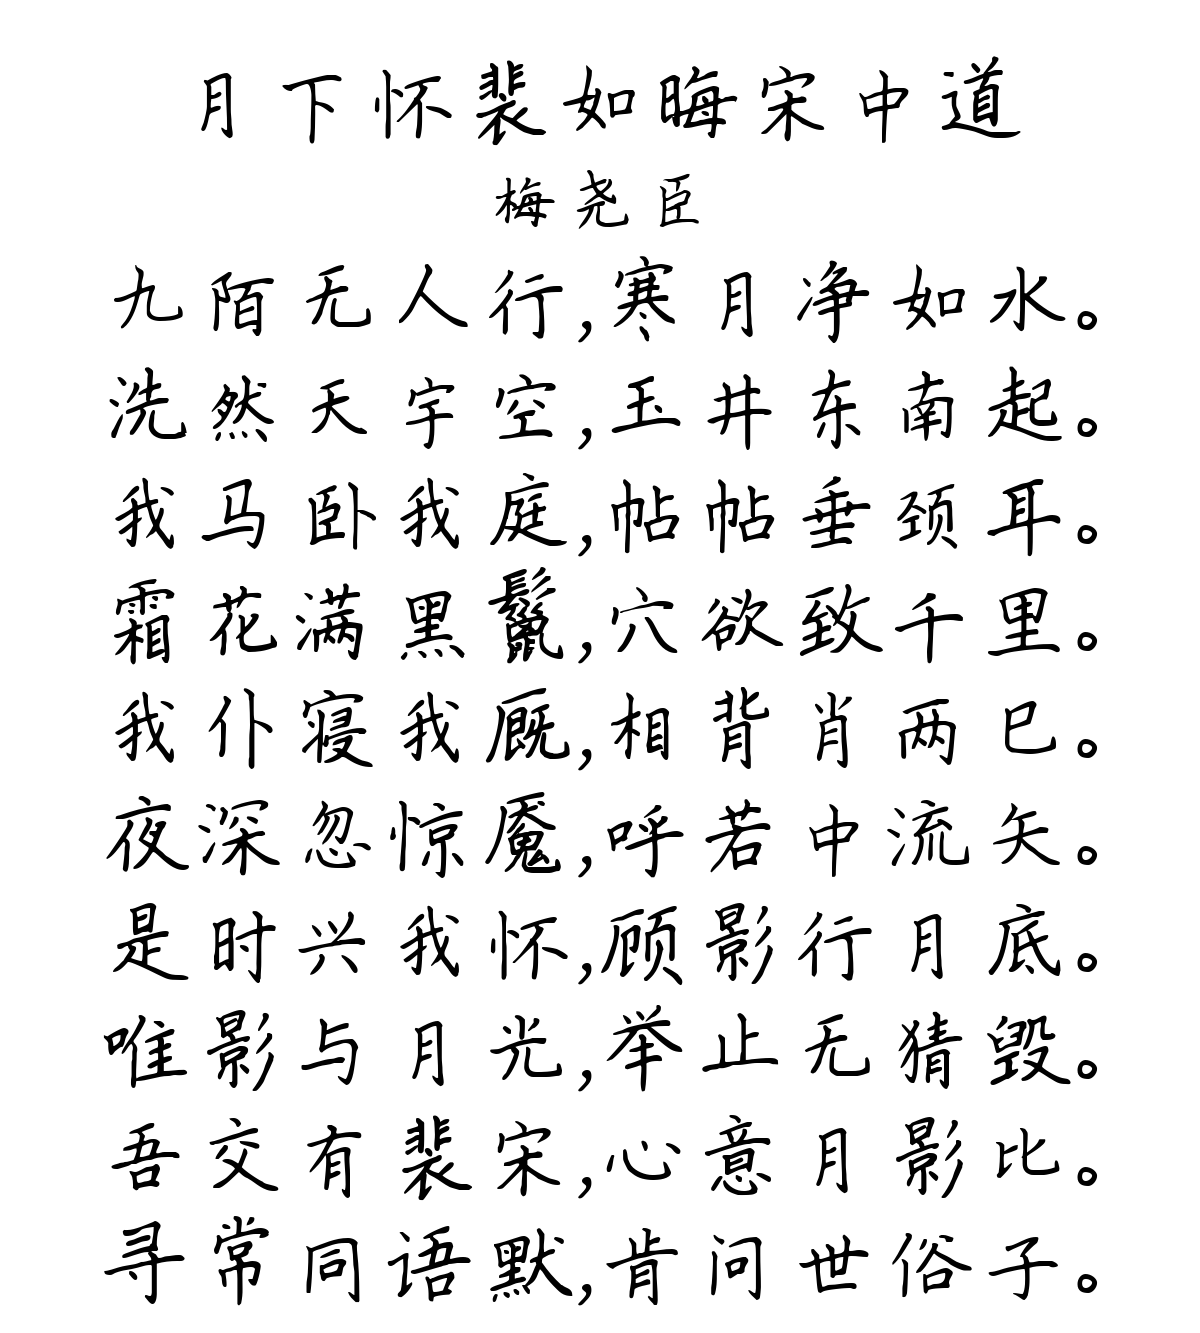 月下怀裴如晦宋中道
梅尧臣
九陌无人行,寒月净如水。
洗然天宇空,玉井东南起。
我马卧我庭,帖帖垂颈耳。
霜花满黑鬣,穴欲致千里。
我仆寝我厩,相背肖两巳。
夜深忽惊魇,呼若中流矢。
是时兴我怀,顾影行月底。
唯影与月光,举止无猜毁。
吾交有裴宋,心意月影比。
寻常同语默,肯问世俗子。